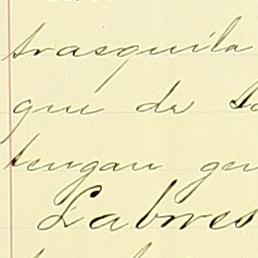 trasquila
que de
tengan
Labores